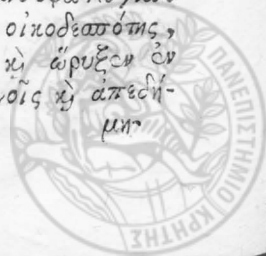 οἰκοδεσπότης,
κὴ ὤρυξεν ἐν
οῖς κὴ ἀπεδή-
μη-
ΠΑΝΕΠΙΣΤΗΜΙΟ ΚΡΗΤΗΣ